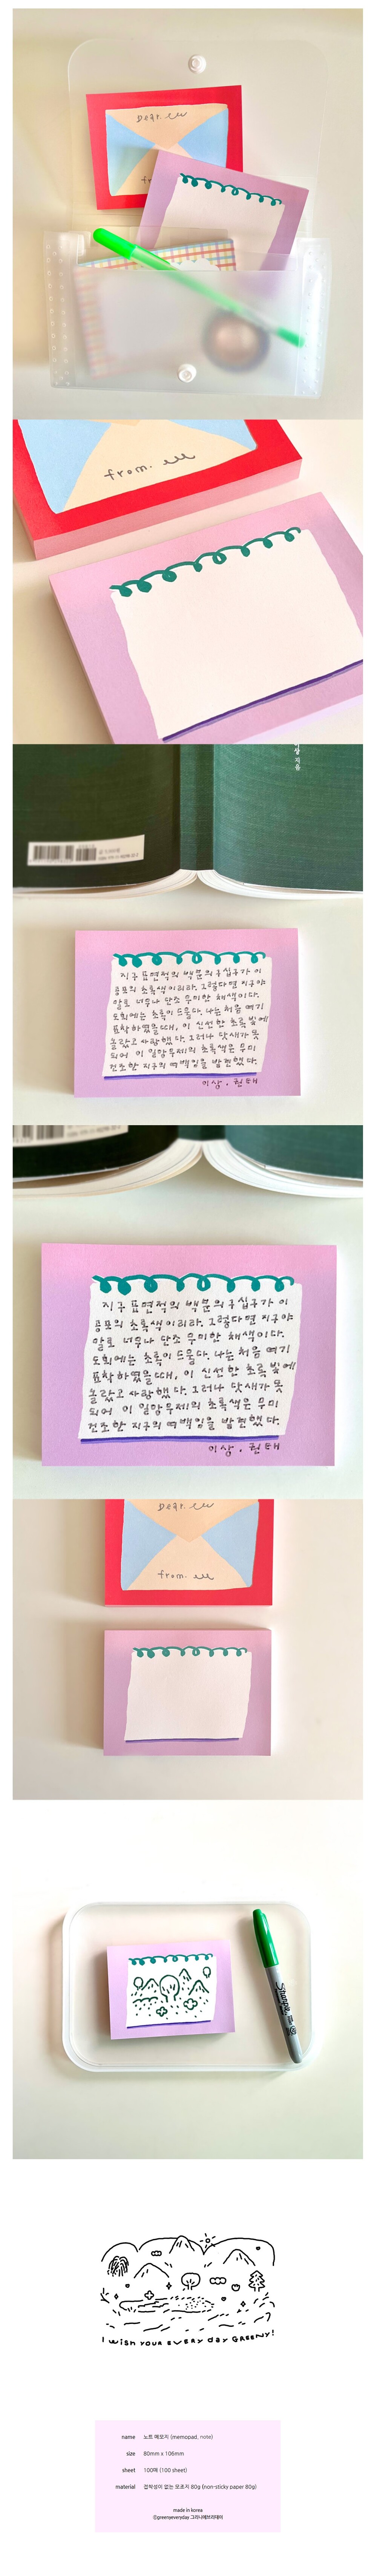 Dear.
from.
이상 지음
지구 표면적의 백분의 구십구가 이
공포의 초록색이리라. 그렇다면 지구야
말로 너무나 단조 무미한 채색이다.
도회에는 초록이 드물다. 나는 처음 여기
표착하였을 때, 이 신선한 초록 빛에
놀랐고 사랑했다. 그러나 닷새가 못
되어 이 일망무제의 초록색은
건조한 지구의 여백임을 발견했다.
이상, 권태
지구 표면적의 백분의 구십구가 이
공포의 초록색이리라. 그렇다면 지구야
말로 너무나 단조 무미한 채색이다.
도회에는 초록이 드물다. 나는 처음 여기
표착하였을 때, 이 신선한 초록 빛에
놀랐고 사랑했다. 그러나 닷새가 못
되어 이 일망무제의 초록색은
건조한 지구의 여백임을 발견했다.
이상, 권태
Dear.
from.
Sharpie
I WISH YOUR EVERY day GREENY!
name 노트 메모지 (memopad, note)
size 80mm x 106mm
sheet 100매 (100 sheet)
material 접착성이 없는 모조지 80g (non-sticky paper 80g)
made in korea
ⓒgreenyeveryday 그리니에브리데이